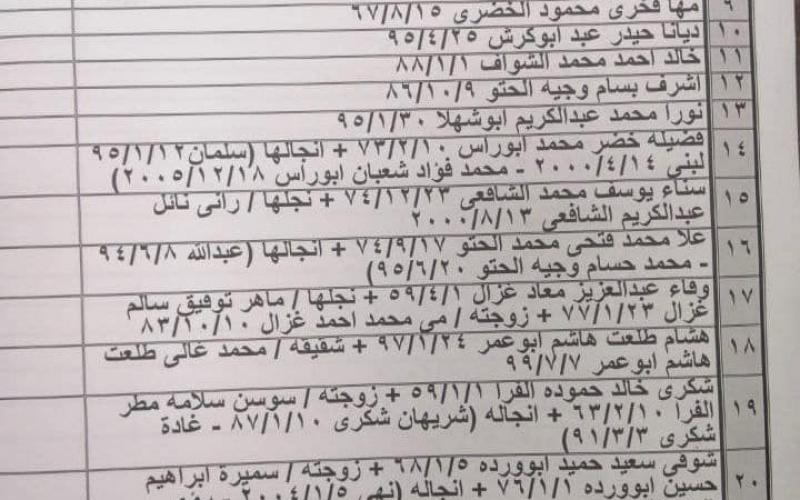 ٩ مها فخرى محمود الخضرى ٦٧/٨/١٥
١٠ ديانا حيدر عبد ابوكرش ٩٥/٤/٢٥
١١ خالد احمد محمد الشواف ٨٨/١/١
١٢ اشرف بسام وجيه الحتو ٨٦/١٠/٩
١٣ نورا محمد عبدالكريم ابوشهلا ٩٥/١/٣٠
١٤ فضيله خضر محمد ابوراس ٧٣/٢/١٠ + انجالها (سلمان ٩٥/١/١٢
لبنى ٢٠٠٠/٤/١٤ - محمد فؤاد شعبان ابوراس ٢٠٠٥/١٢/١٨)
١٥ سناء يوسف محمد الشافعى ٧٤/١٢/٢٣ + نجلها / رانى نائل
عبدالكريم الشافعى ٢٠٠٠/٨/١٣
١٦ علا محمد فتحى محمد الحتو ٧٤/٩/١٧ + انجالها (عبدالله ٩٤/٦/٨
- محمد حسام وجيه الحتو ٩٥/٦/٢٠)
١٧ وفاء عبدالعزيز معاد غزال ٥٩/٤/١ + نجلها / ماهر توفيق سالم
غزال ٧٧/١/٢٣ + زوجته / مى محمد احمد غزال ٨٣/١٠/١٠
١٨ هشام طلعت هاشم ابوعمر ٩٧/١/٢٤ + شقيقه / محمد غالى طلعت
هاشم ابوعمر ٩٩/٧/٧
١٩ شكرى خالد حموده الفرا ٥٩/١/١ + زوجته / سوسن سلامه مطر
الفرا ٦٣/٢/١٠ + انجاله (شريهان شكرى ٨٧/١/١٠ - غادة
شكرى ٩١/٣/٣)
٢٠ شوقى سعيد حميد ابوورده ٦٨/١/٥ + زوجته / سميرة ابراهيم
حسين ابوورده ٧٦/١/١ + انجاله (نهى ٢٠٠٤/١/٥ -